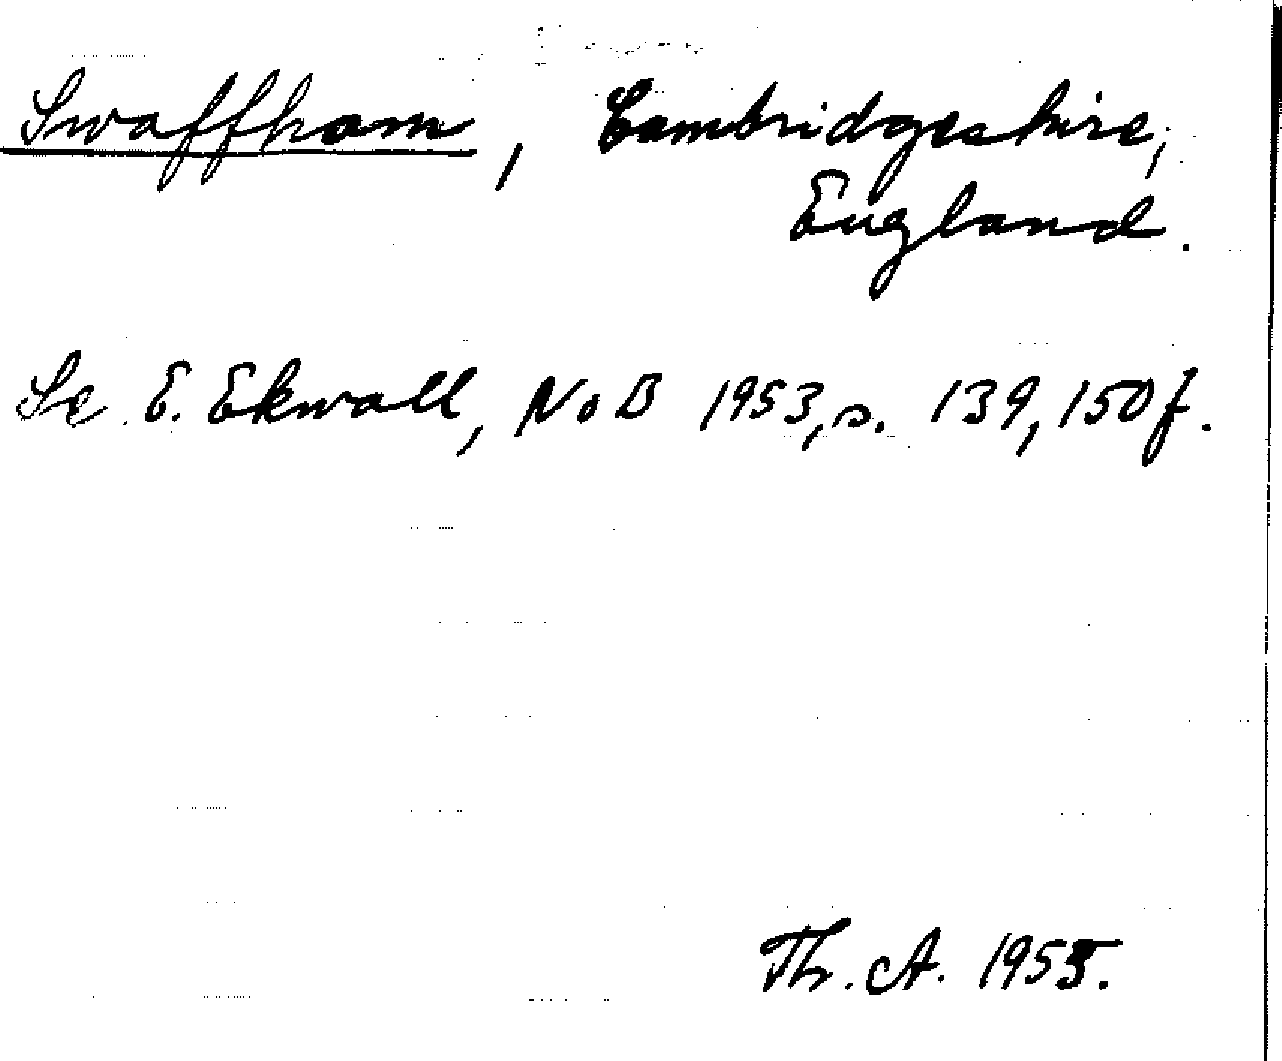 Swaffham, Cambridgeshire,
England.
Se E. Ekwall, NoB 1953, s. 139, 150f.
Th. A. 1955.